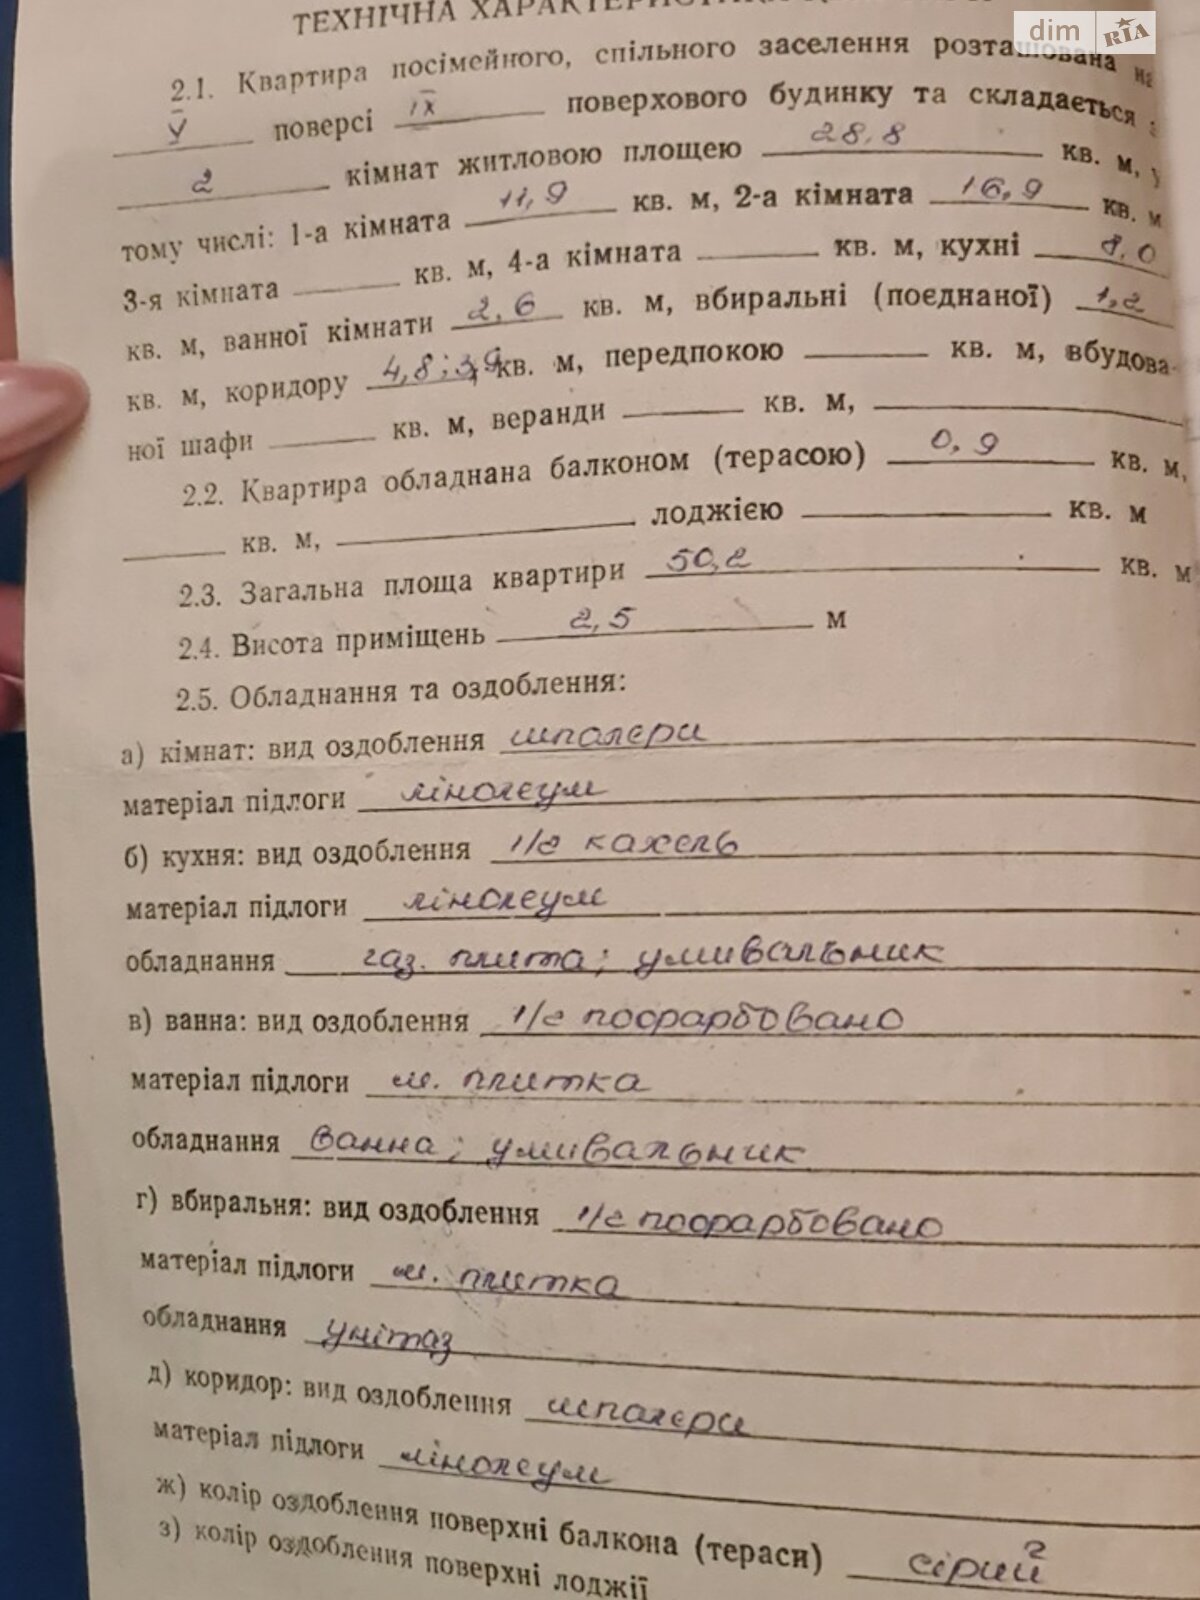 ТЕХНІЧНА
dim RIA
2.1. Квартира посімейного, спільного заселення розташована на
V поверсі IX поверхового будинку та складається з
2 кімнат житловою площею 28,8 кв. м, у
тому числі: 1-а кімната 11,9 кв. м, 2-а кімната 16,9 кв. м
3-я кімната кв. м, 4-а кімната кв. м, кухні 8,0
кв. м, ванної кімнати 2,6 кв. м, вбиральні (поєднаної) 1,2
кв. м, коридору 4,8; 3,9 кв. м, передпокою кв. м, вбудова-
ної шафи кв. м, веранди кв. м,
2.2. Квартира обладнана балконом (терасою) 0,9 кв. м,
кв. м, лоджією кв. м
2.3. Загальна площа квартири 50,2 кв. м
2.4. Висота приміщень 2,5 м
2.5. Обладнання та оздоблення:
а) кімнат: вид оздоблення шпалери
матеріал підлоги лінолеум
б) кухня: вид оздоблення 1/2 кахель
матеріал підлоги лінолеум
обладнання газ. плита; умивальник
в) ванна: вид оздоблення 1/2 пофарбовано
матеріал підлоги м. плитка
обладнання ванна; умивальник
г) вбиральня: вид оздоблення 1/2 пофарбовано
матеріал підлоги м. плитка
обладнання унітаз
д) коридор: вид оздоблення шпалери
матеріал підлоги лінолеум
ж) колір оздоблення поверхні балкона (тераси) сірий
з) колір оздоблення поверхні лоджії